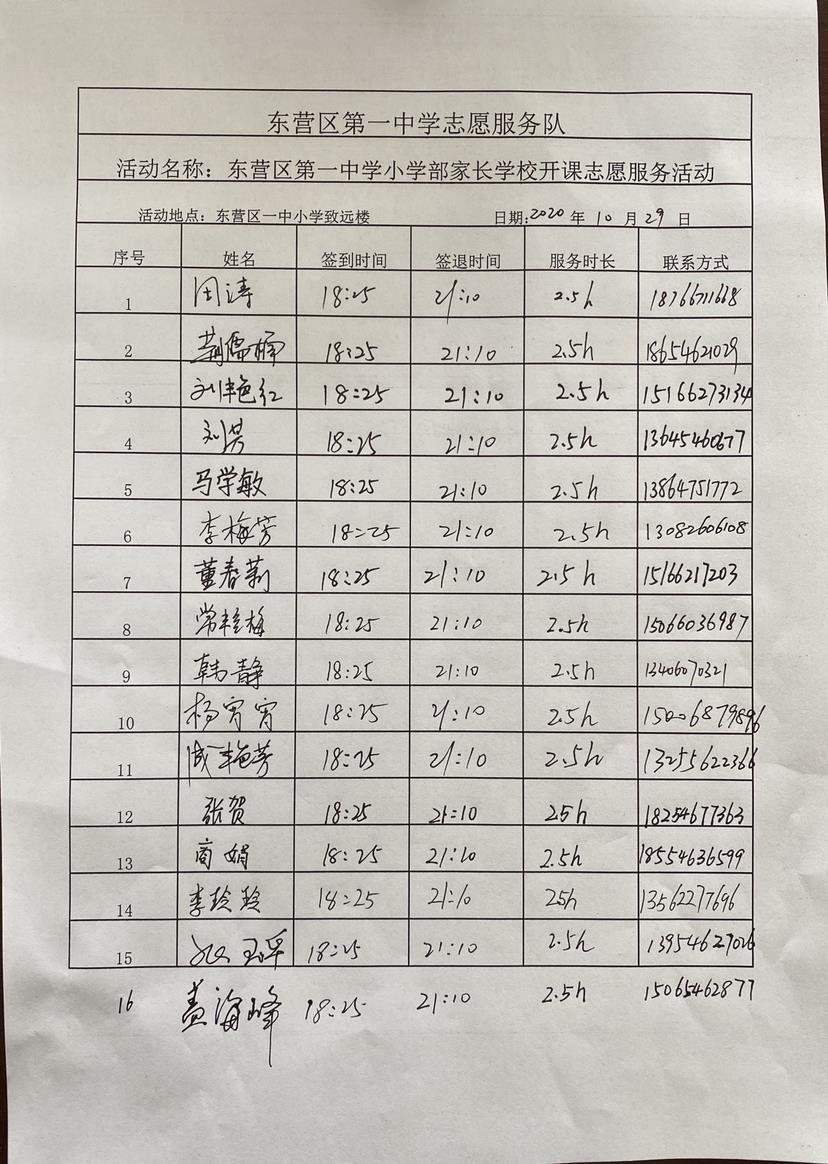 东营区第一中学志愿服务队
活动名称：东营区第一中学小学部家长学校开课志愿服务活动
活动地点：东营区一中小学致远楼 日期:2020 年 10 月 29 日
序号 姓名 签到时间 签退时间 服务时长 联系方式
1 田涛 18:25 21:10 2.5h 18766711668
2 18:25 21:10 2.5h 18654621029
3 刘艳红 18:25 21:10 2.5h 15166273134
4 刘 18:25 21:10 2.5h 13645460677
5 马学敏 18:25 21:10 2.5h 13864751772
6 李梅芳 18:25 21:10 2.5h 13082606108
7 董春莉 18:25 21:10 2.5h 15166217203
8 常桂梅 18:25 21:10 2.5h 15066036987
9 韩静 18:25 21:10 2.5h 13406070321
10 杨宵宵 18:25 21:10 2.5h 15006879896
11 成艳芳 18:25 21:10 2.5h 13255622366
12 张贺 18:25 21:10 25h 18254677363
13 商娟 18:25 21:10 2.5h 18554636599
14 李玲玲 18:25 21:10 25h 13562277696
15 18:25 21:10 2.5h 13954627026
16 盖海峰 18:25 21:10 2.5h 15065462877